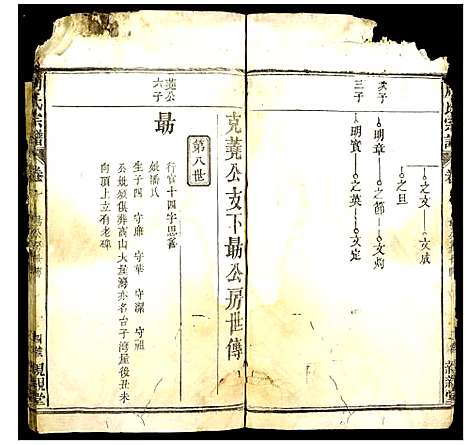 之文 文成
之旦
次子
明章 之節 文炳
三子
明實 之英 文定
克蕘公支下勗公房世傳
第八世
蕘公
六子
勗
行官十四字思蓍
妣潘氏
生子四 守廉 守華 守潔 守祖
公妣俱葬高山大壠灣亦名台子湾屋後丑未
向頂上立有老碑
氏宗譜
卷
四
親親堂